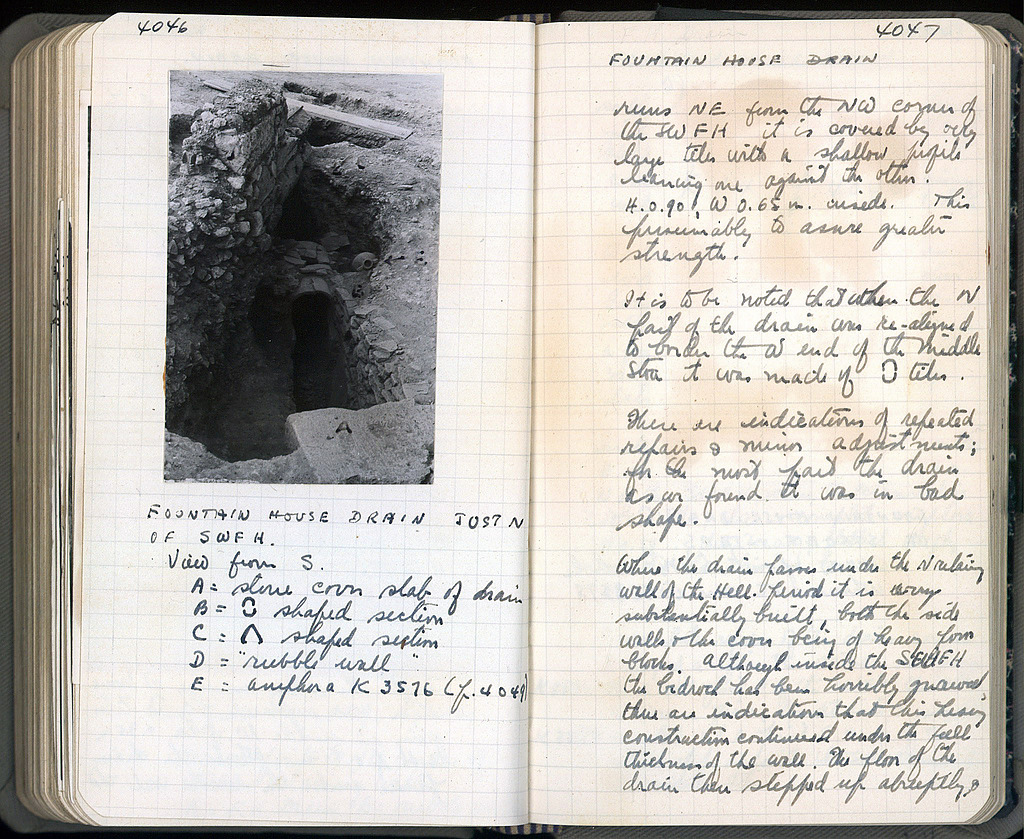 4046
A
FOUNTAIN HOUSE DRAIN JUST N
OF SWFH.
View from S.
A = stone cover slab of drain
B = shaped section
C = Λ shaped section
D = "rubble wall"
E = amphora K 3576 (p. 4049)
4047
FOUNTAIN HOUSE DRAIN
runs NE from the NW corner of
the SWFH it is covered by very
large tiles with a shallow profile
leaning one against the other.
H. 0.90, W 0.65 m. inside. This
presumably to assure greater
strength.
It is to be noted that when the N
part of the drain was re-aligned
to border the W end of the Middle
Stoa it was made of tiles.
There are indications of repeated
repairs & minor adjustments;
for the most part the drain
as we found it was in bad
shape.
Where the drain passes under the N retaining
wall of the Hell. Period it is very
substantially built, both the side
walls & the cover being of heavy poros
blocks. Although inside the SWFH
the bedrock has been horribly gnawed,
there are indications that this heavy
construction continued under the full
thickness of the wall. The floor of the
drain then stepped up abruptly &